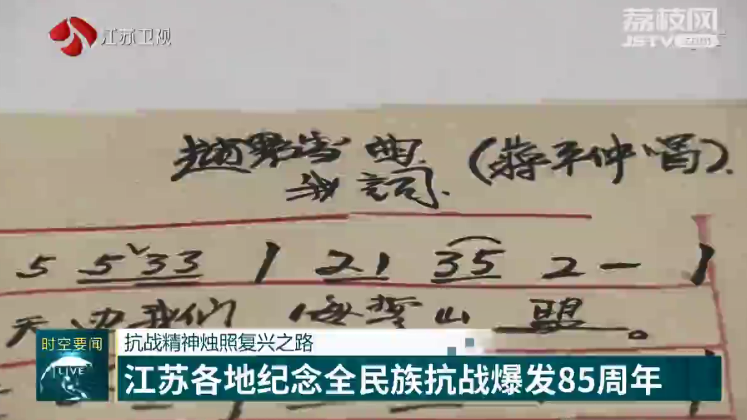 江苏卫视
荔枝网
JSTV.COM
曲
词
(蒋平仲唱).
5 5 33 | 21 35 2 - |
我们 海誓山盟。
时空要闻
LIVE
抗战精神烛照复兴之路
江苏各地纪念全民族抗战爆发85周年